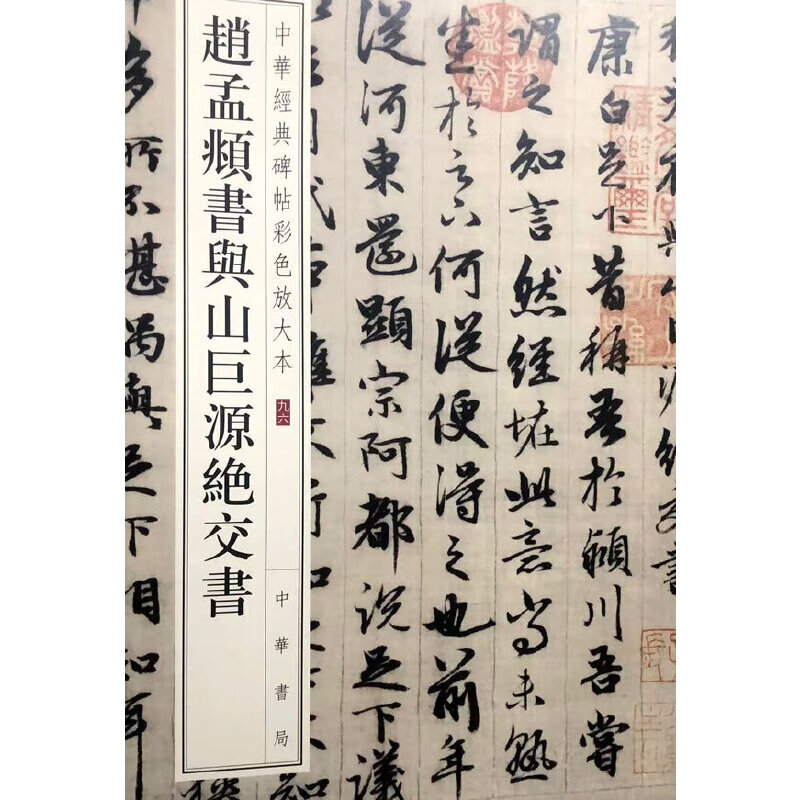 康白足下昔稱吾於潁川吾嘗
謂之知言然經怪此意尚未熟
悉於足下何從便得之也前年
從河東還顯宗阿都說足下議
中華經典碑帖彩色放大本
九六
中華書局
趙孟頫書與山巨源絶交書
多所不堪偶與足下相知耳